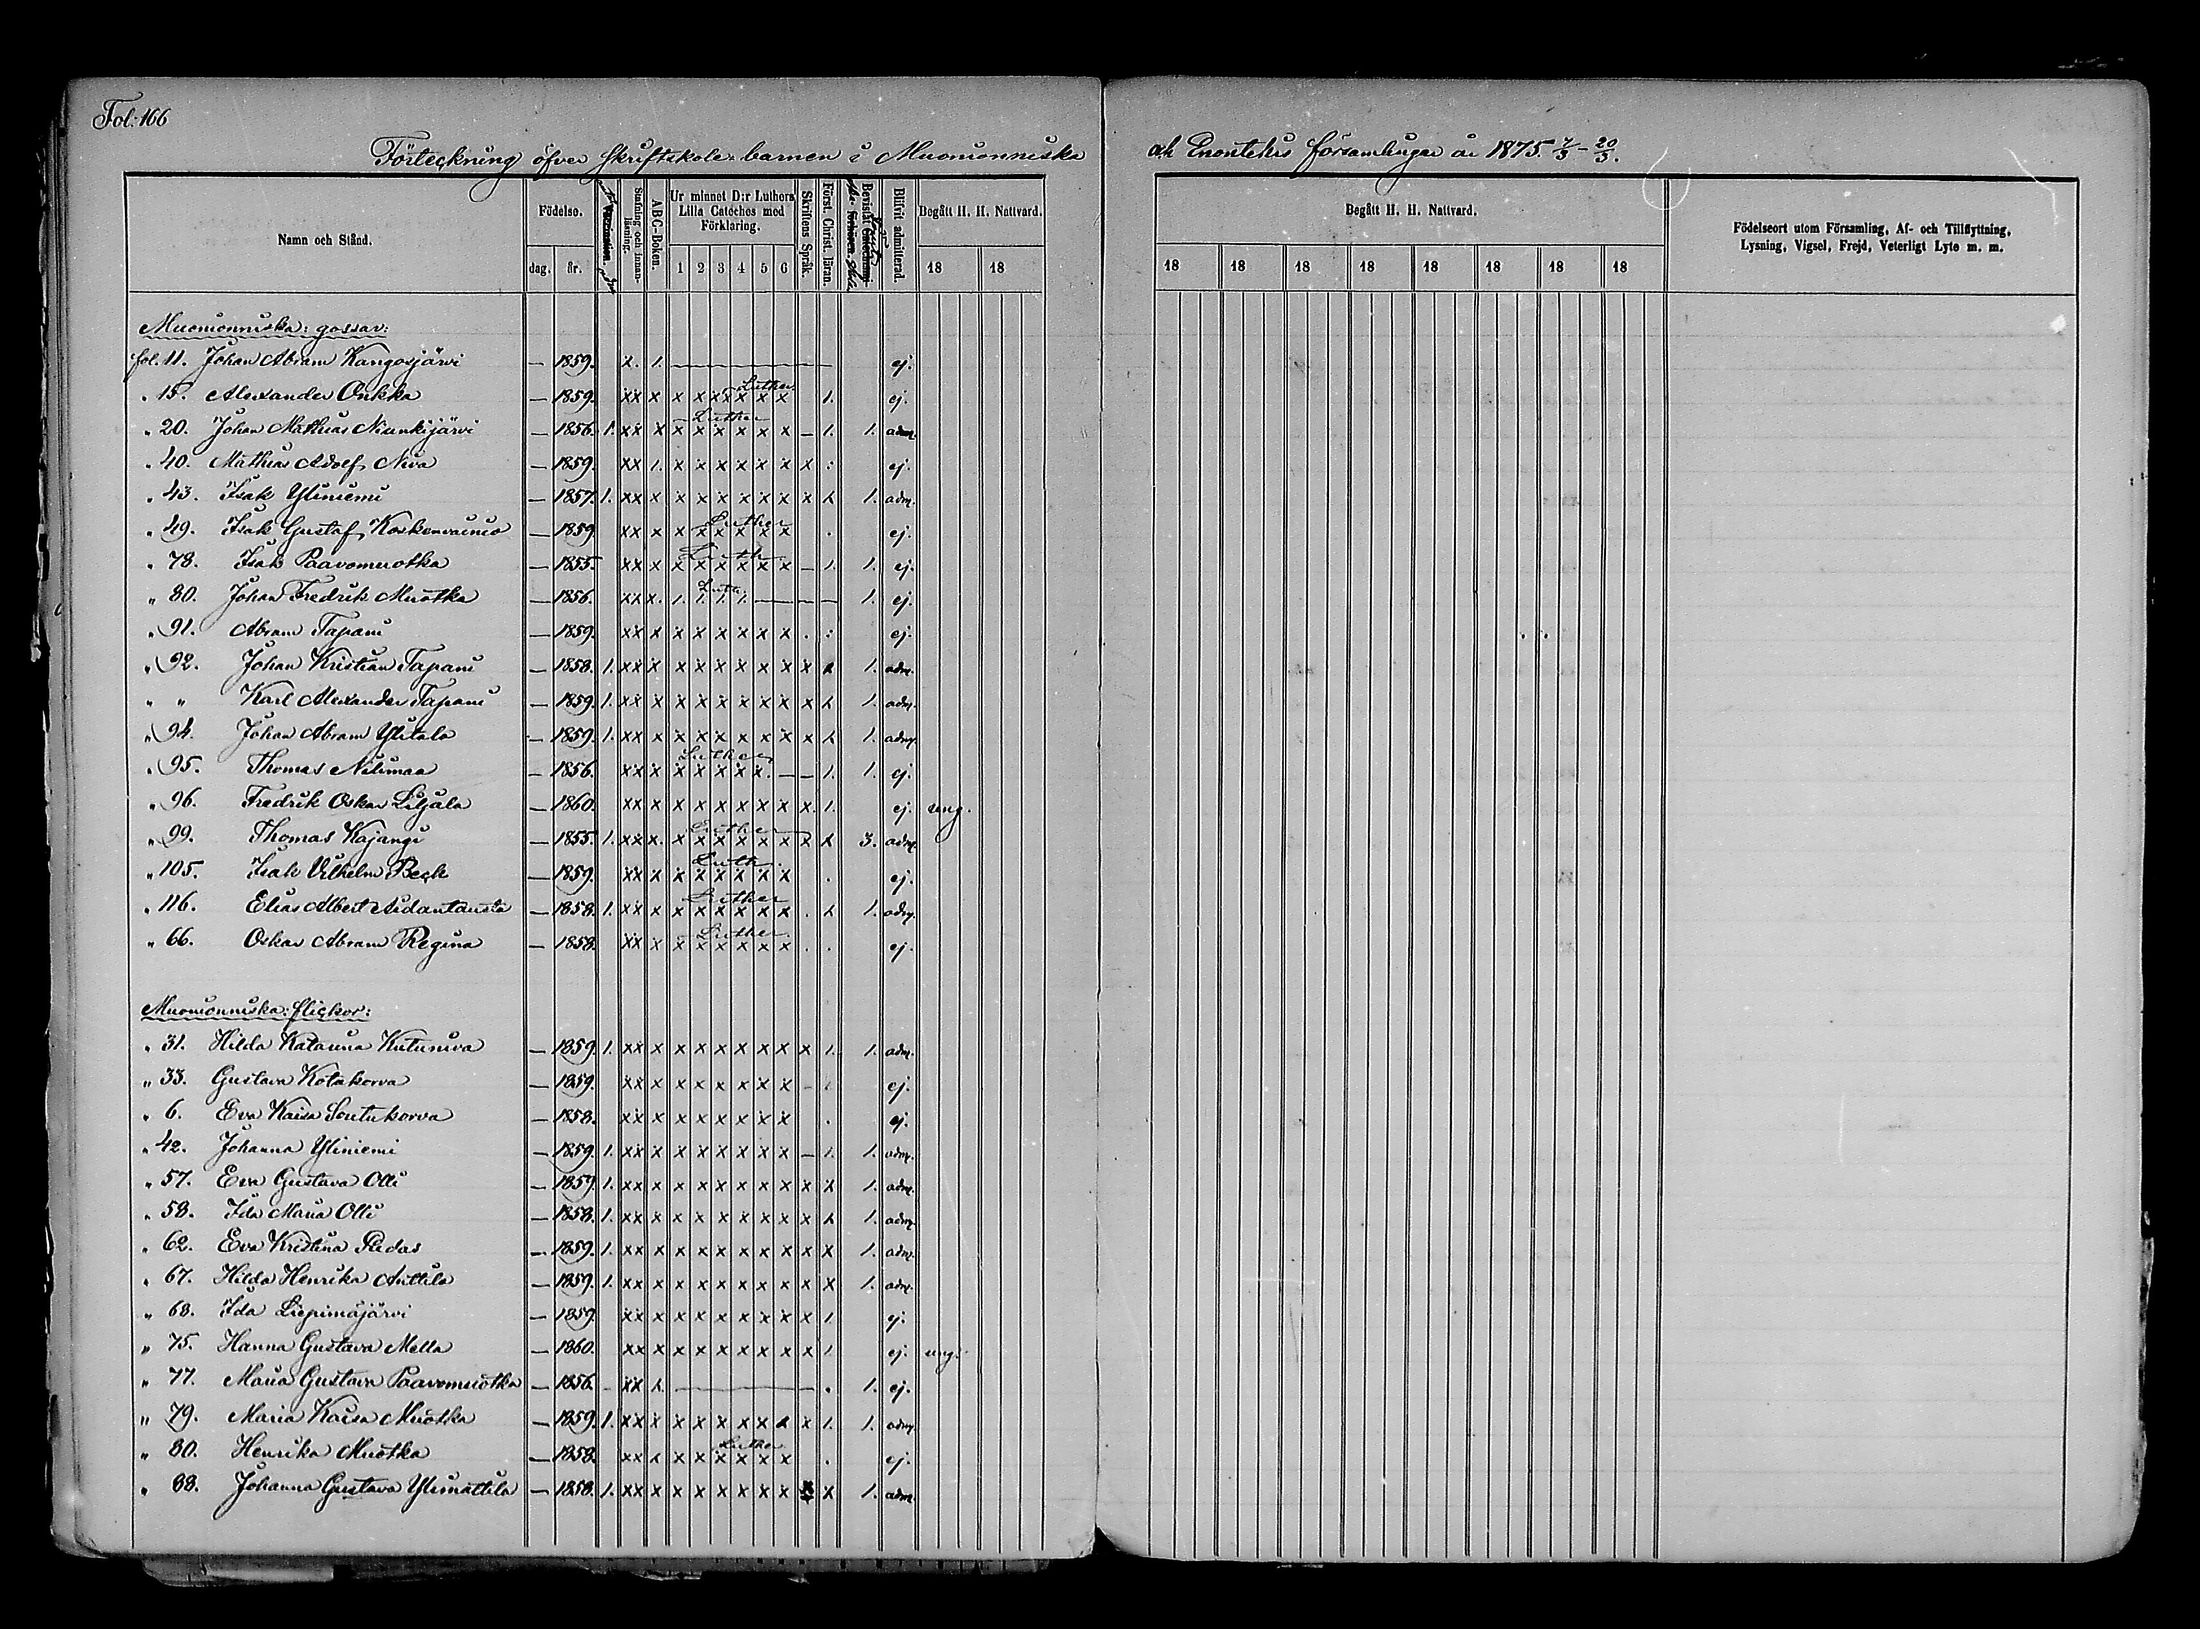 Fol: 166
Förteckning öfver skriftskole-barnen i Muonionniska och Enontekis församlingar år 1875. 7/3 – 20/3.
Namn och Stånd. Födelse. Vaccination. Stafning och innan-läsning. ABC-Boken. Ur minnet D:r Luthers Lilla Cateches med Förklaring. Skriftens Språk. Först. Christ. läran. Bevistat Blifvit admitterad. Begått H. H. Nattvard. Begått H. H. Nattvard. Födelseort utom Församling, Af- och Tillflyttning, Lysning, Vigsel, Frejd, Veterligt Lyte m. m.
dag. år. 1 2 3 4 5 6 18 18 18 18 18 18 18 18 18 18
Muonionniska: gossar:
fol. 11. Johan Abram Kangosjärvi — 1859. x. 1. — ej.
" 15. Alexander Onkka — 1859. xx x x x x x x x Luther 1. ej.
" 20. Johan Mathias Niunkijärvi — 1856. 1. xx x x x x x x x Luther — 1. 1. adm.
" 40. Mathias Adolf Niva — 1859. xx 1. x x x x x x x : ej.
" 43. Isak Yliniemi — 1857. 1. xx x x x x x x x x x 1. adm.
" 49. Isak Gustaf Koskenvainio — 1859. xx x x x x x x x Luther . ej.
" 78. Isak Paavomuotka — 1855. xx x x x x x x x Luth. — 1. 1. ej.
" 80. Johan Fredrik Muotka — 1856. xx x. 1. 1. 1. 1. Luth. — 1. ej.
" 91. Abram Tapani — 1859. xx x x x x x x x . : ej.
" 92. Johan Kristian Tapani — 1858. 1. xx x x x x x x x x x 1. adm.
" " Karl Alexander Tapani — 1859. 1. xx x x x x x x x x x 1. adm.
" 94. Johan Abram Ylitalo — 1859. 1. xx x x x x x x x x x 1. adm.
" 95. Thomas Nilimaa — 1856. xx x x x x x x. Luther — — 1. 1. ej.
" 96. Fredrik Oskar Liljala — 1860. xx x x x x x x x x. 1. ej. ung.
" 99. Thomas Kajangi — 1855. 1. xx x. x x x x x x Luther x x 3. adm.
" 105. Isak Vilhelm Beck — 1859. xx x x x x x x x Luth. . ej.
" 116. Elias Albert Aidantausta — 1858. 1. xx x x x x x x x Luther . x 1. adm.
" 66. Oskar Abram Regina — 1858. xx x x x x x x x Luther . . ej.
Muonionniska: flickor:
" 31. Hilda Katarina Kutuniva — 1859. 1. xx x x x x x x x x 1. 1. adm.
" 33. Gustava Kotakorva — 1859. xx x x x x x x x — ej.
" 6. Eva Kaisa Soutukorva — 1858. xx x x x x x x x . ej.
" 42. Johanna Yliniemi — 1859. 1. xx x x x x x x x — 1. 1. adm.
" 57. Eva Gustava Olli — 1859. 1. xx x x x x x x x x x 1. adm.
" 58. Ida Maria Olli — 1858. 1. xx x x x x x x x x x 1. adm.
" 62. Eva Kristina Piedas — 1859. 1. xx x x x x x x x x x 1. adm.
" 67. Hilda Henrika Anttila — 1859. 1. xx x x x x x x x x x 1. adm.
" 68. Ida Liepimäjärvi — 1859. xx x x x x x x x x 1. ej.
" 75. Hanna Gustava Mella — 1860. xx x x x x x x x x 1. ej. ung.
" 77. Maria Gustava Paavomuotka — 1856. xx x. — . 1. ej.
" 79. Maria Kaisa Muotka — 1859. 1. xx x x x x x x x x 1. 1. adm.
" 80. Henrika Muotka — 1858. xx x x x x x x x Luther . ej.
" 88. Johanna Gustava Ylimattila — 1858. 1. xx x x x x x x x x x 1. adm.